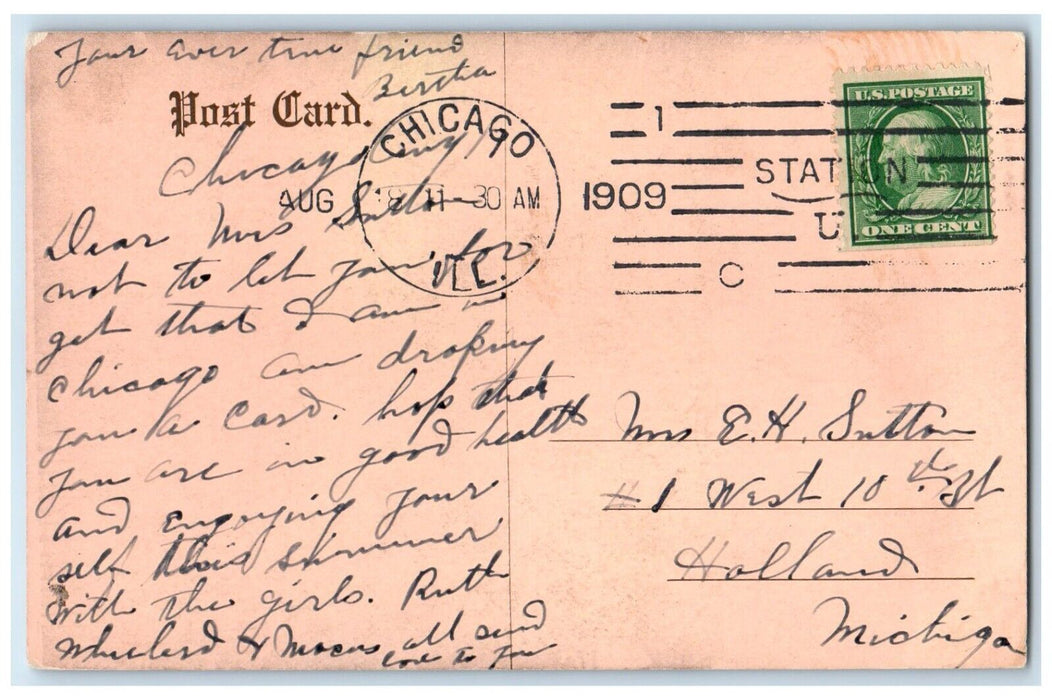 Your ever true friend
Bertha
Post Card.
Chicago Aug 19
CHICAGO
AUG 18 11-30 AM 1909
ILL.
1
STATION
U.
C
U.S. POSTAGE
ONE CENT
Dear Mrs Sutton
not to let you for
get that I am in
Chicago am droping
you a Card. hop that
you are in good health
and engoying your
self this summer
with the girls. Ruth
Wheelerd & all send
love to you
Mrs E. H. Sutton
#1 West 10th St
Holland
Michigan